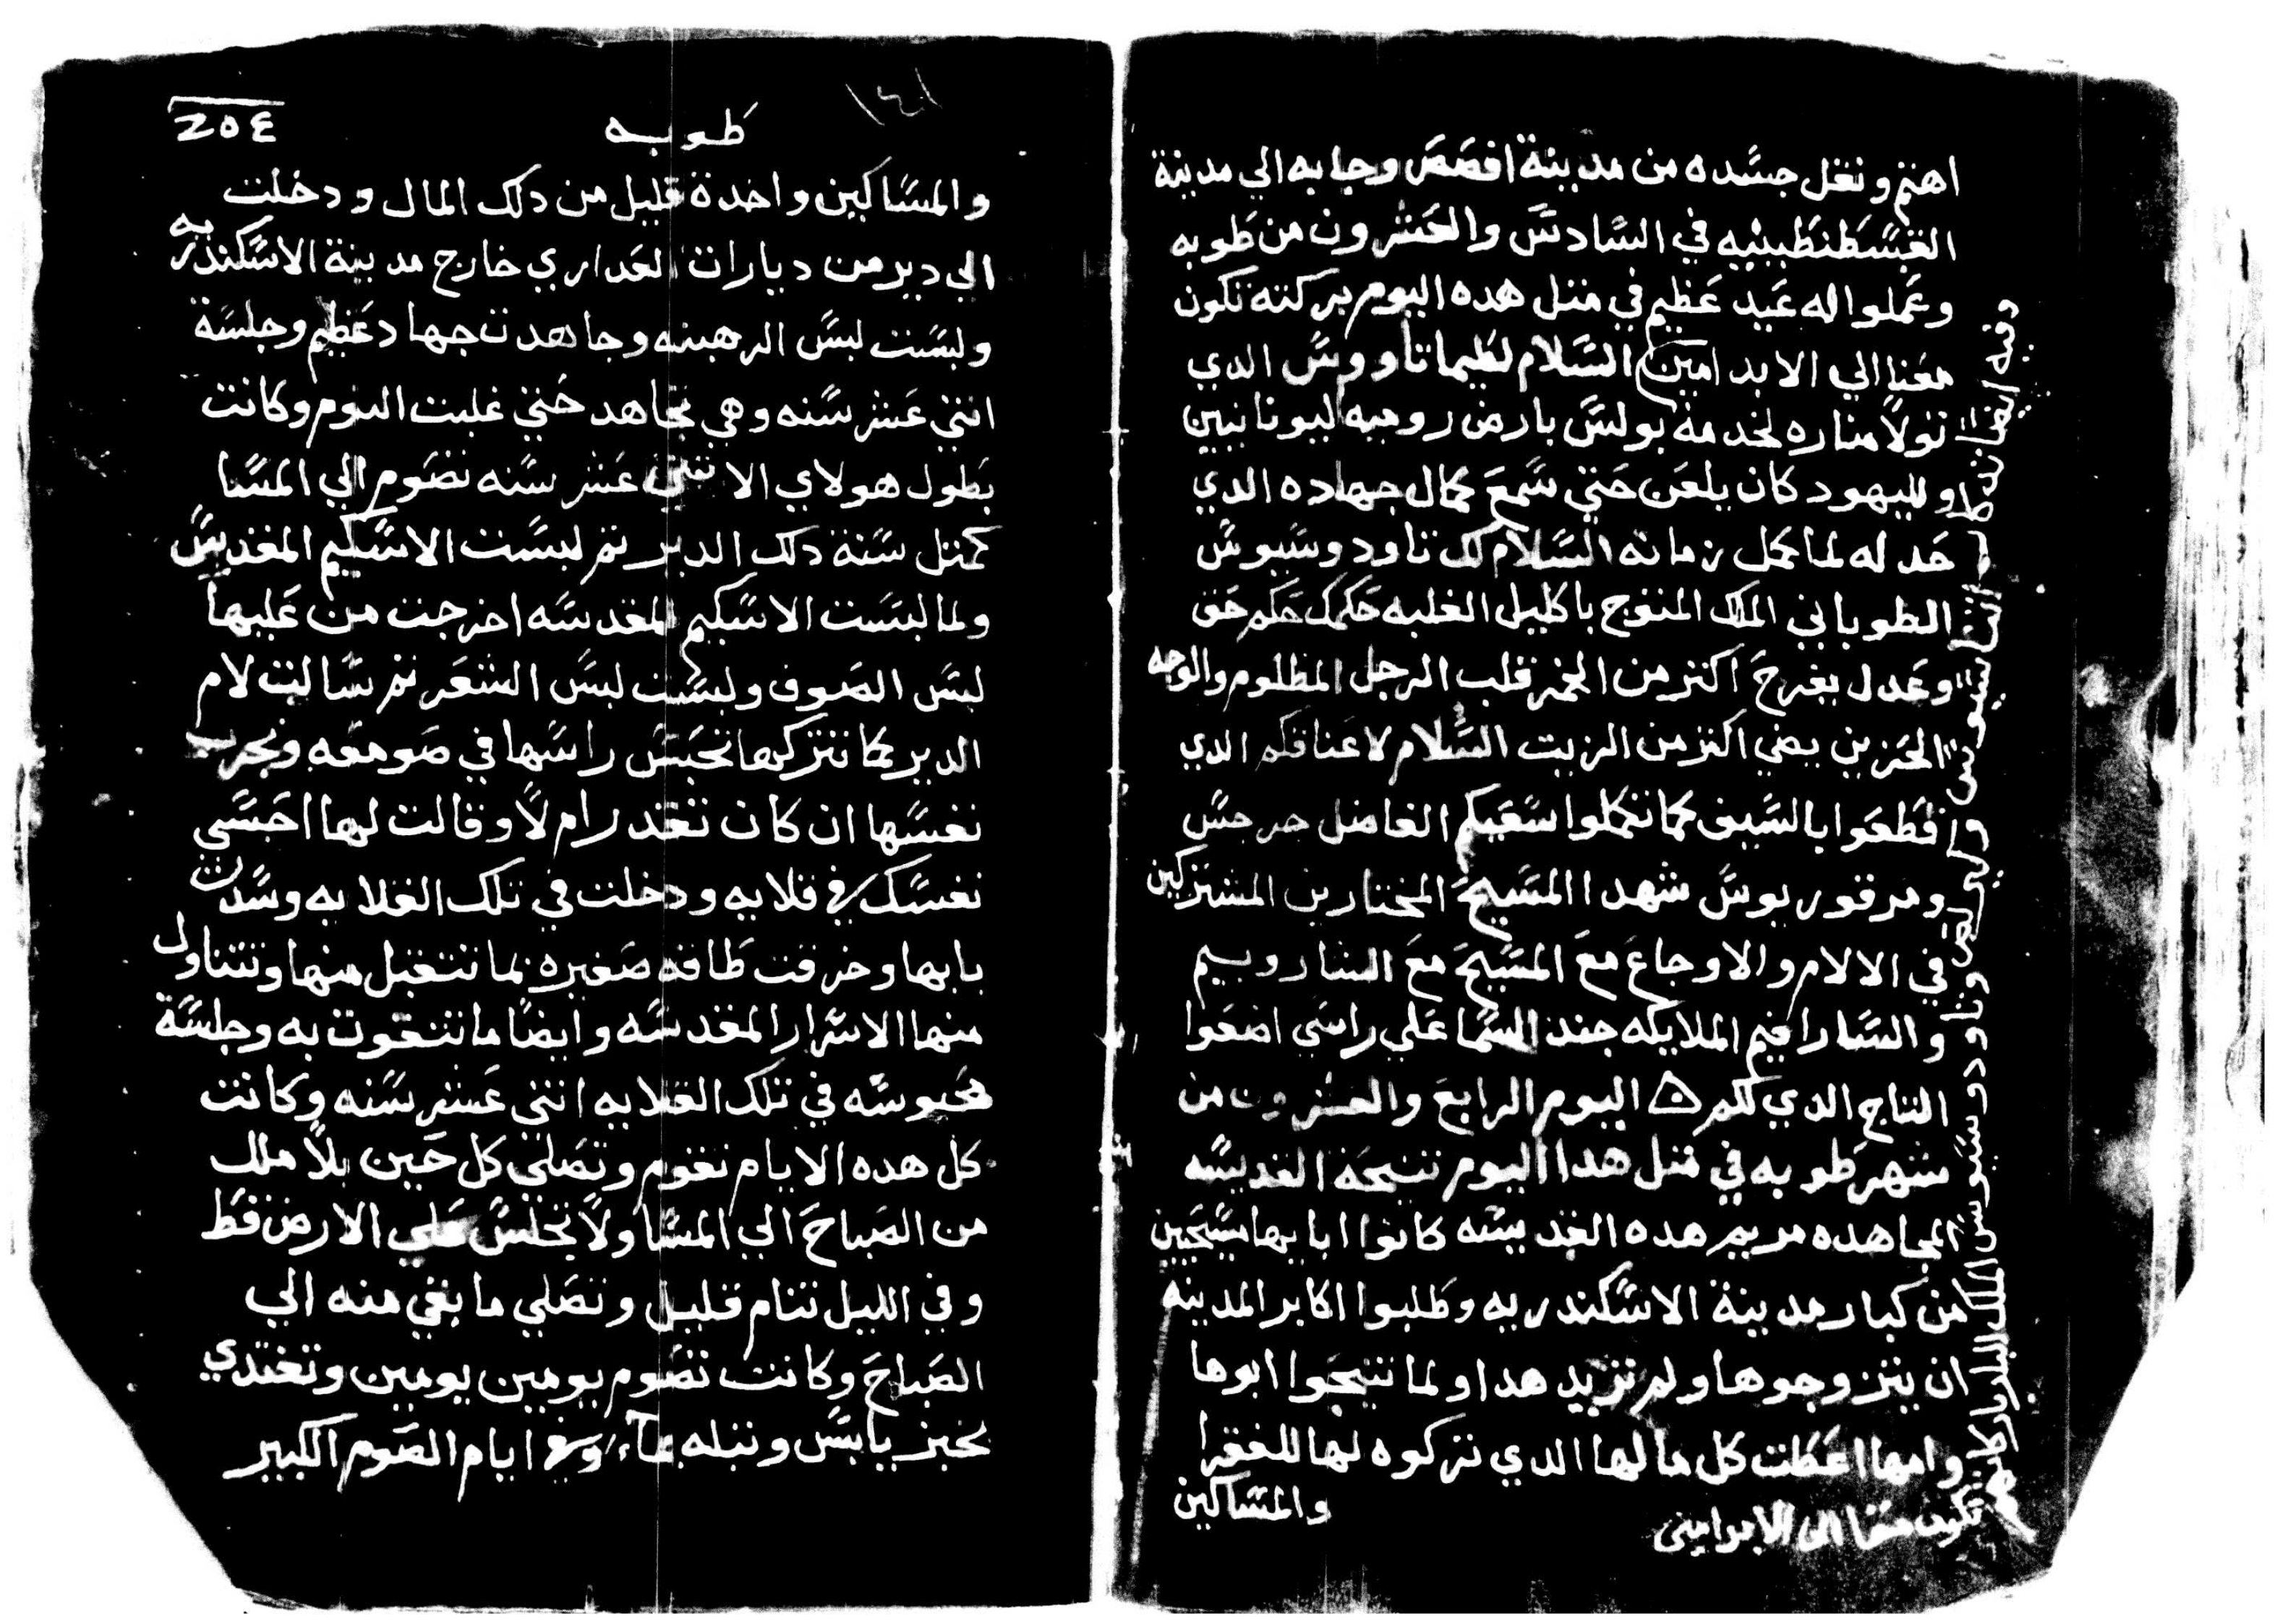 اهتم ونقل جسده من مدينة افصص وجابه الي مدينة
القسطنطينيه في السادس والعشرون من طوبه
وعملوا له عيد عظيم في مثل هده اليوم بركته تكون
معنا الي الابد امين السلام لطيماتاووس الدي
تولا مناره لخدمة بولس بارض روميه ليونانيين
ولليهود كان يلعن حتي سمع كمال جهاده الدي
حد له لما كمل زمانه السلام لك تاودوسيوس
الطوباني الملك المتوج باكليل الغلبه حكمك حكم حق
وعدل يفرح اكتر من الخمر قلب الرجل المظلوم والوجه
الحزين يضي اكتر من الزيت السلام لاعناقكم الدي
قطعوا بالسيف كما تكملوا سعيكم الفاضل جرجس
ومرقوريوس شهدا المسيح المختارين المشتركين
في الالام والاوجاع مع المسيح مع الشاروبيم
والسارافيم الملايكه جند السما علي راسي اضعوا
التاج الدي لكم اليوم الرابع والعشرون من
شهر طوبه في مثل هدا اليوم تنيحة القديسه
المجاهده مريم هده القديسه كانوا ابايها مسيحيين
من كبار مدينة الاسكندريه وطلبوا اكابر المدينه
ان يتزوجوها ولم تريد هدا ولما تنيحوا ابوها
وامها اعطت كل مالها الدي تركوه لها للفقرا
والمساكين
وفيه ايضا تدكار انسا وتاودوسيوس الملك البار
تكون معنا الي الابد امين
١٤١
طوبه
٢٥٤
والمساكين واخدة قليل من دلك المال ودخلت
الي دير من ديارات العداري خارج مدينة الاسكندريه
ولبست لبس الرهبنه وجاهدت جهاد عظيم وجلسة
اتني عشر سنه وهي تجاهد حتي غلبت النوم وكانت
بطول هولاي الاتني عشر سنه تصوم الي المسا
كمتل سنة دلك الدير تم لبست الاسكيم المقدس
ولما لبست الاسكيم المقدسه اخرجت من عليها
لبس الصوف ولبست لبس الشعر تم سالت لام
الدير كما تتركها تحبس راسها في صومعه وتجرب
نفسها ان كان تقدر ام لا وقالت لها احبسي
نفسك في قلايه ودخلت في تلك القلايه وسدت
بابها وخرقت طاقه صغيره كما تتقبل منها وتتناول
منها الاسرار المقدسه وايضا ما تتقوت به وجلسة
محبوسه في تلك القلايه اتني عشر سنه وكانت
كل هده الايام تقوم وتصلي كل حين بلا ملل
من الصباح الي المسا ولا تجلس علي الارض قط
وفي الليل تنام قليل وتصلي ما بقي منه الي
الصباح وكانت تصوم يومين يومين وتغتدي
بخبز يابس وتبله بماء وفي ايام الصوم الكبير